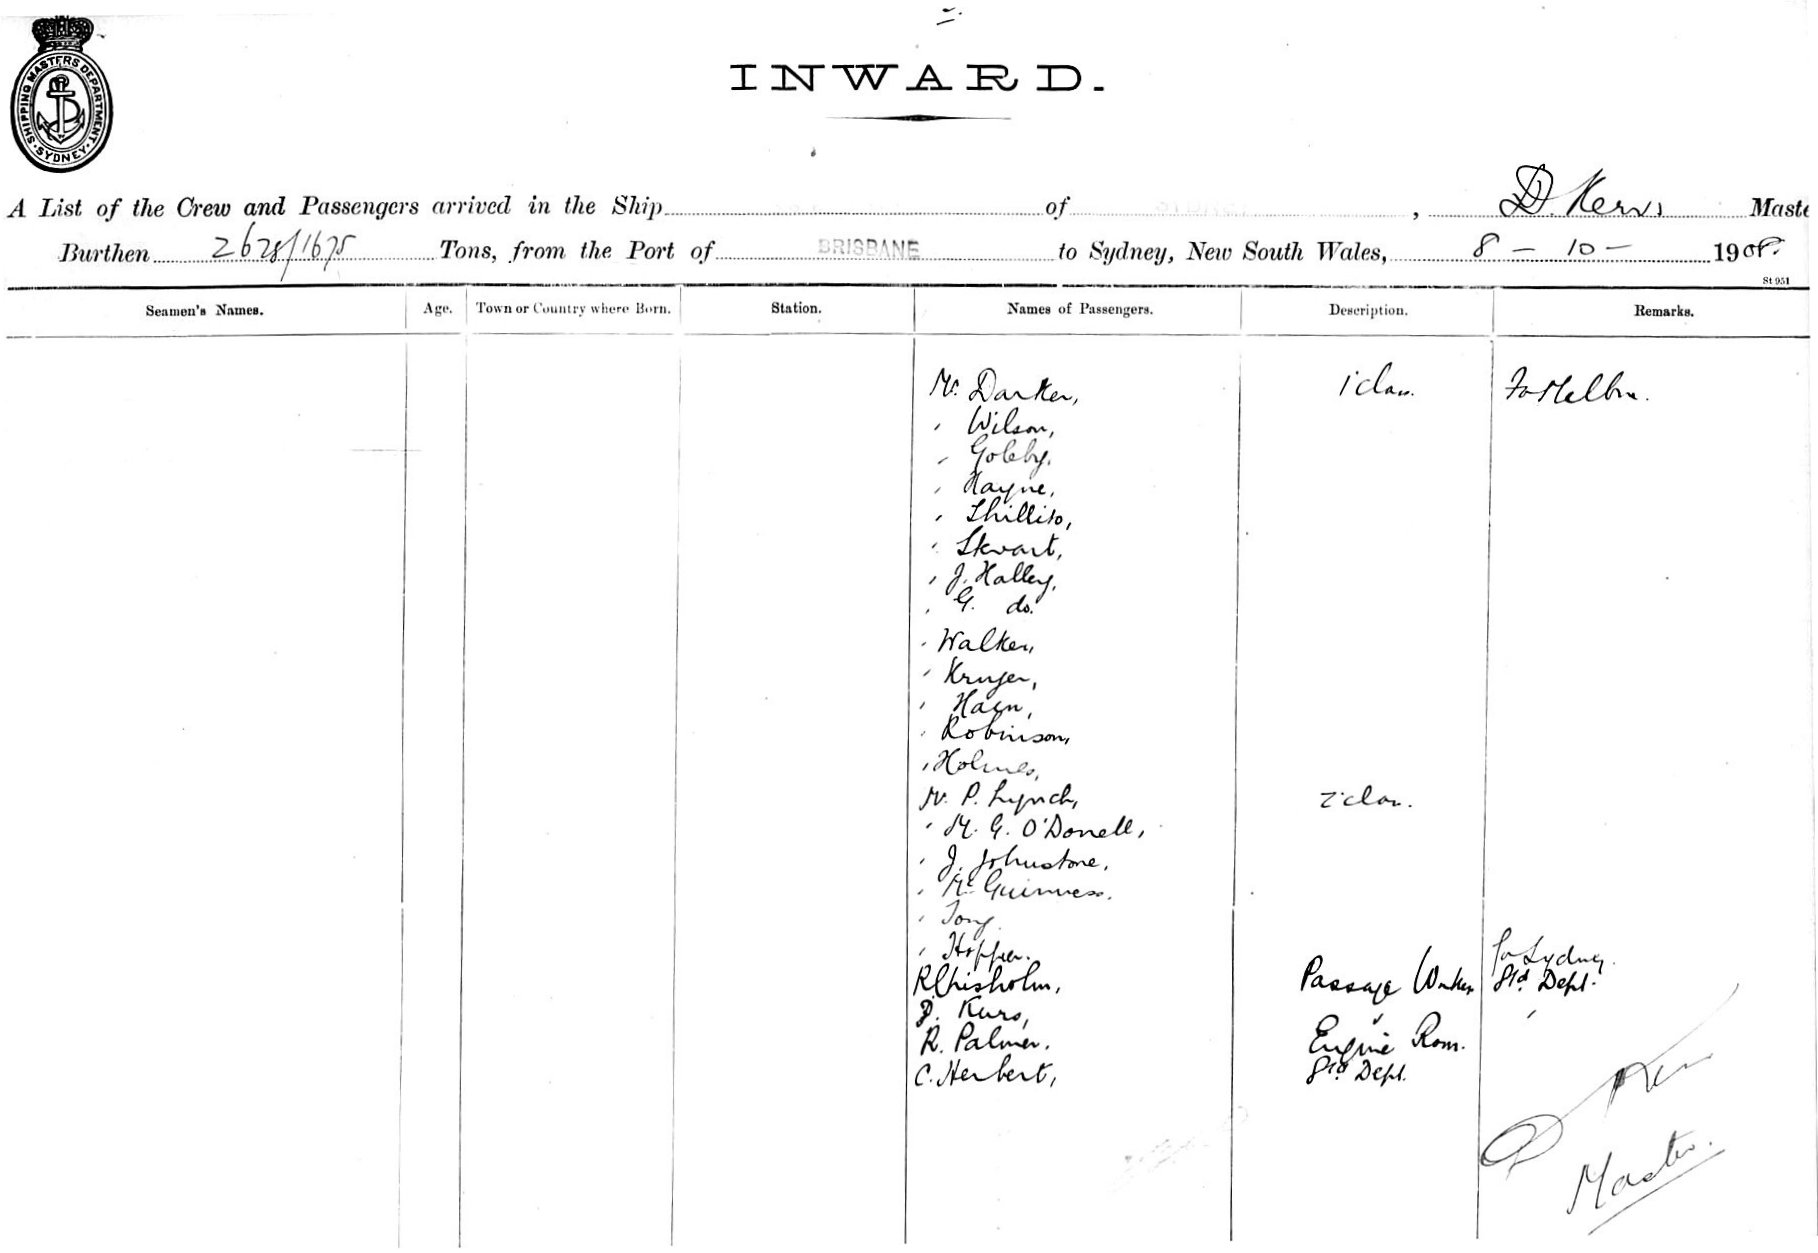 INWARD.
SHIPPING MASTERS DEPARTMENT
SYDNEY
A List of the Crew and Passengers arrived in the Ship of , D. Kerr Maste
Burthen 2628/1675 Tons, from the Port of BRISBANE to Sydney, New South Wales, 8 - 10 - 1908.
St 951
Seamen's Names. Age. Town or Country where Born. Station. Names of Passengers. Description. Remarks.
Mr. Darker, 1 class. For Melbn.
" Wilson,
" Goleby,
" Hayne,
" Shillito,
" Stewart,
" J. Halley,
" G. do.
" Walker,
" Kruger,
" Haen,
" Robinson,
" Holmes,
Mr. P. Lynch, 2 class.
" M. G. O'Donell,
" J. Johnstone,
" McGuinness.
" Tong
" Hopper. for Sydney.
R Chisholm, Passage Worker Std. Dept.
Kurs, " "
R. Palmer. Engine Room.
C. Herbert, Std Dept.
D Kerr
Master.